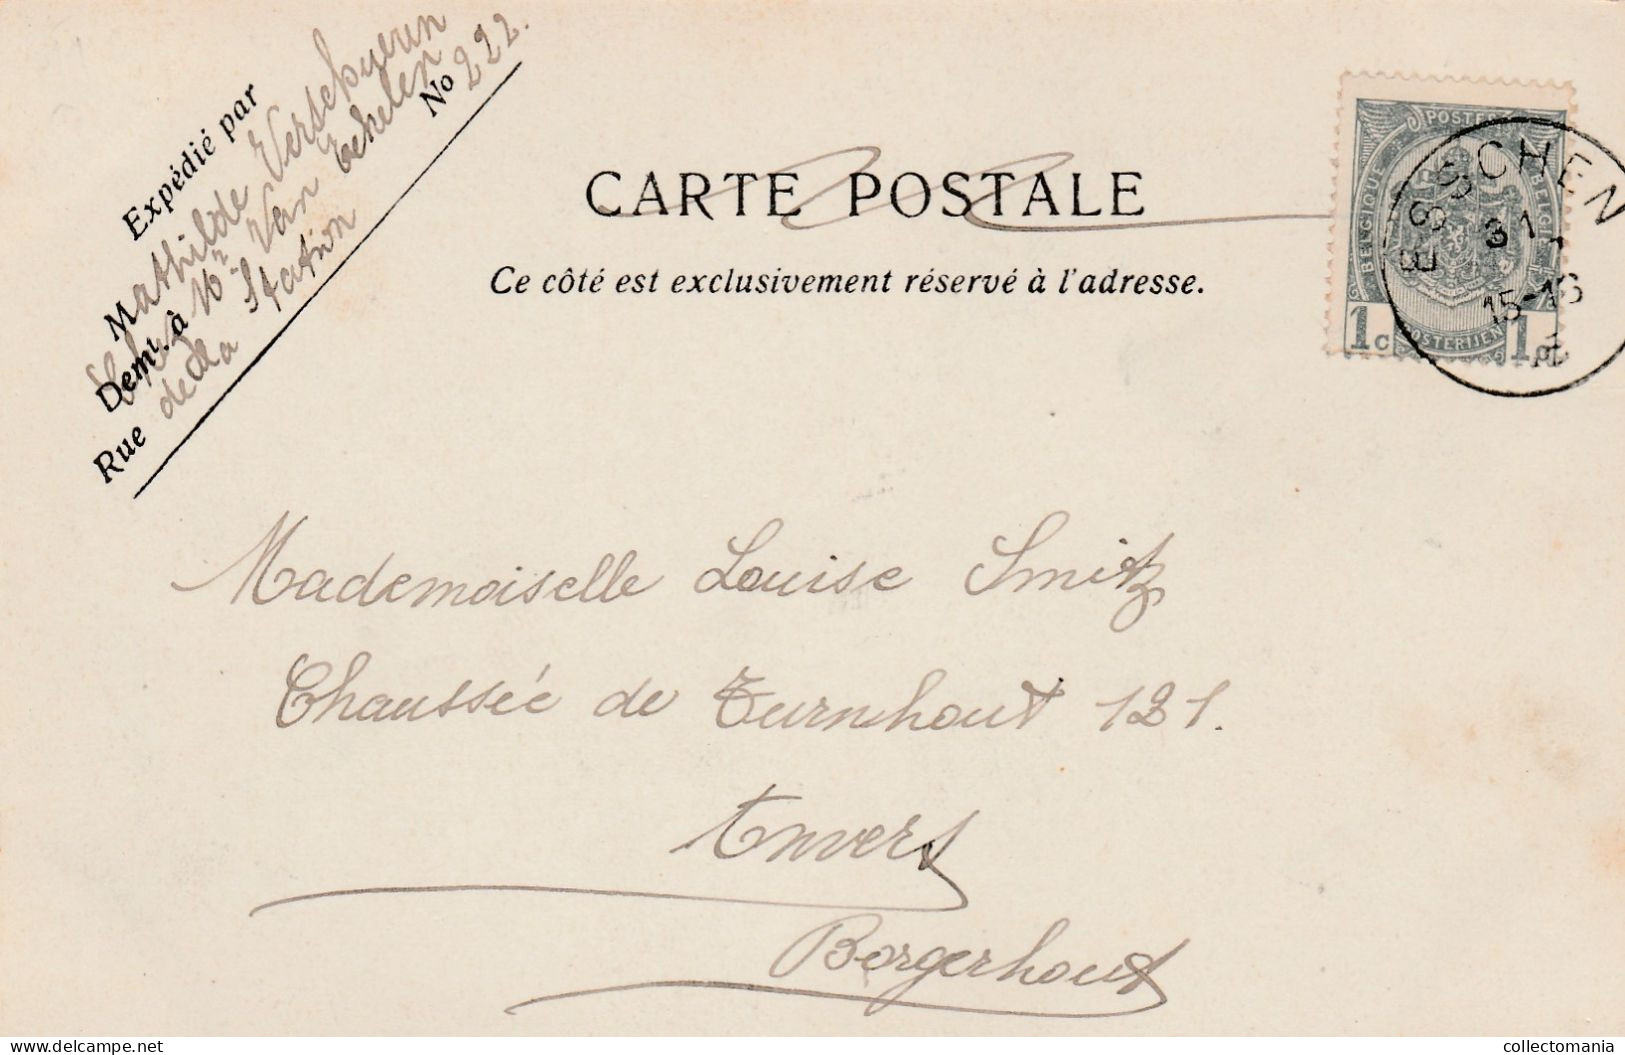 Expédié par
Mathilde Verschueren
Demt. à chez Mr Van Echelen
Rue de la Station No 222.
CARTE POSTALE
Ce côté est exclusivement réservé à l'adresse.
POSTES
BELGIQUE
BELGIË
POSTERIJEN
1c 1c
ESSCHEN
31
15-16
Mademoiselle Louise Smitz
Chaussée de Turnhout 121.
Anvers
Borgerhout
delcampe.net
collectomania